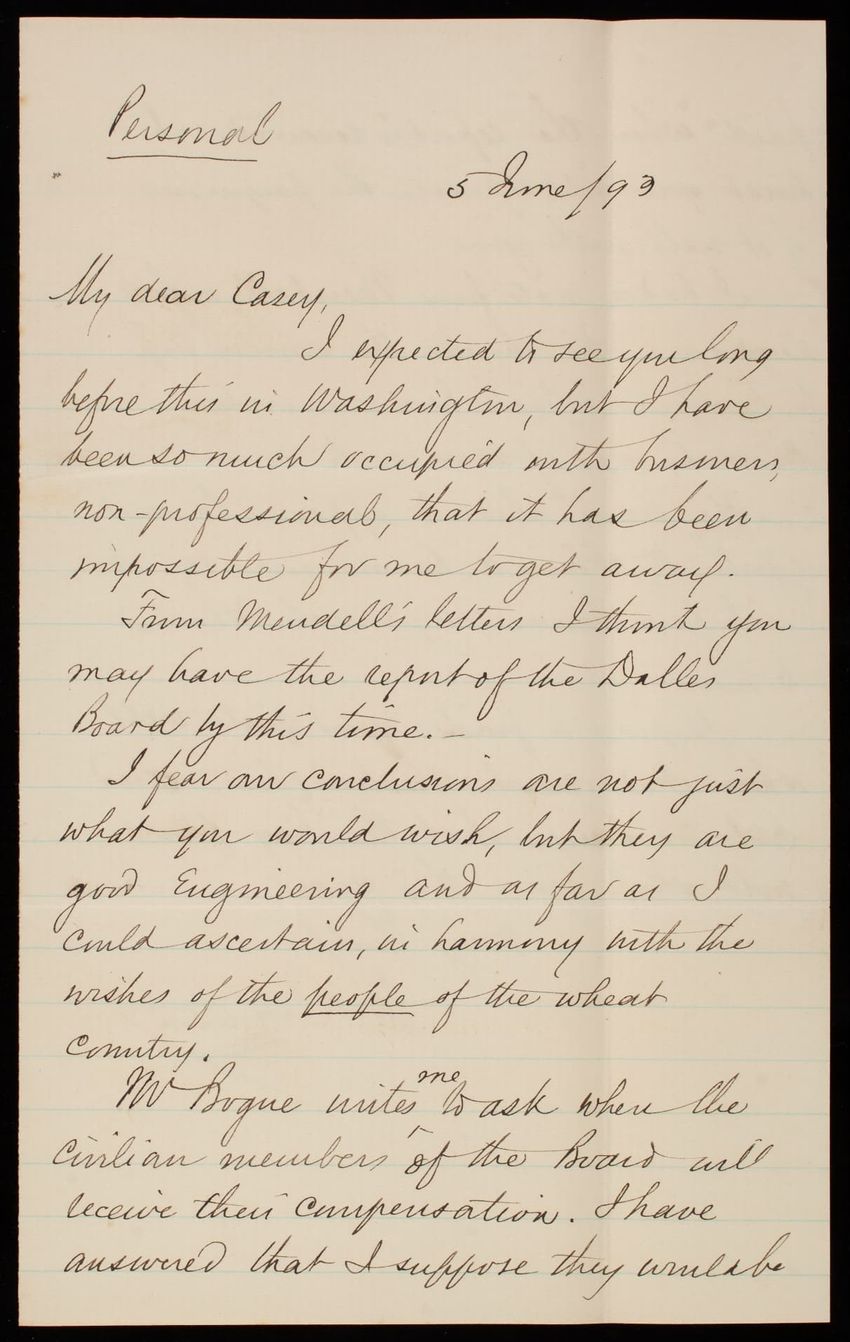 Personal
5 June/93
My dear Casey,
I expected to see you long
before this in Washington, but I have
been so much occupied with business,
non-professional, that it has been
impossible for me to get away.
From Mendell's letters I think you
may have the report of the Dalles
Board by this time. —
I fear our conclusions are not just
what you would wish, but they are
good Engineering and as far as I
could ascertain, in harmony with the
wishes of the people of the wheat
country.
Mr Bogue writes me to ask when the
civilian members of the Board will
receive their compensation. I have
answered that I suppose they would be